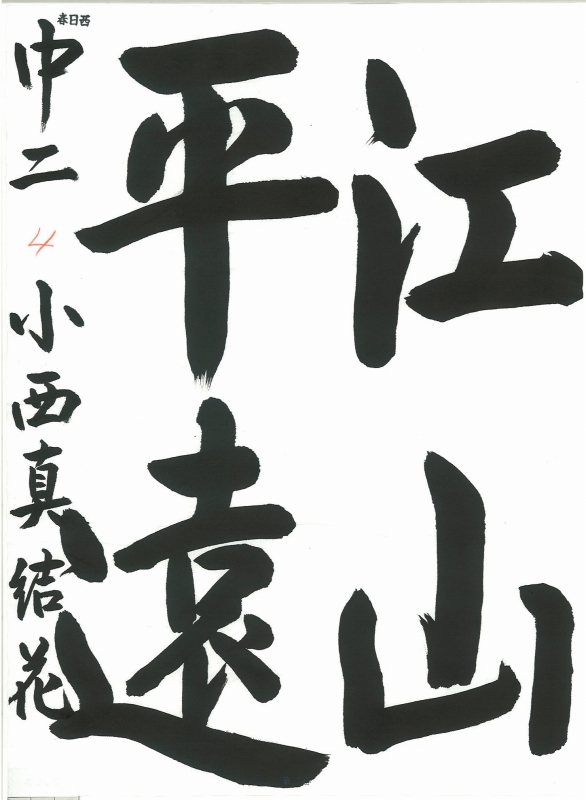 江山
平遠
中二 小西真結花
4
西日春